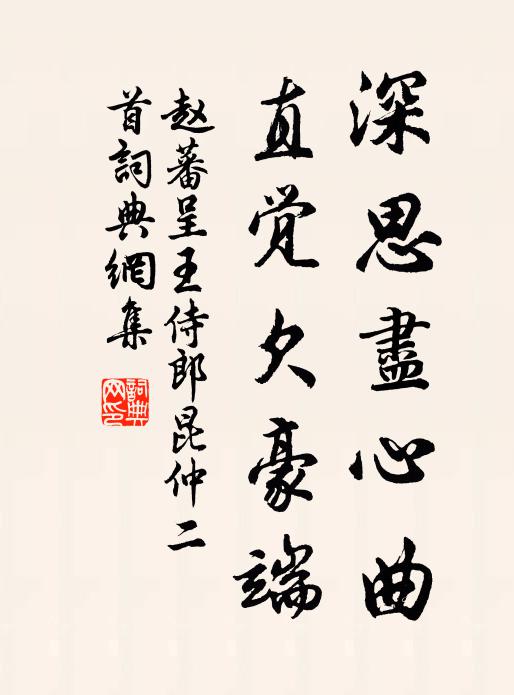 深思盡心曲
直觉欠豪端
赵蕃呈王侍郎昆仲二
首詞典網集
詞典网印